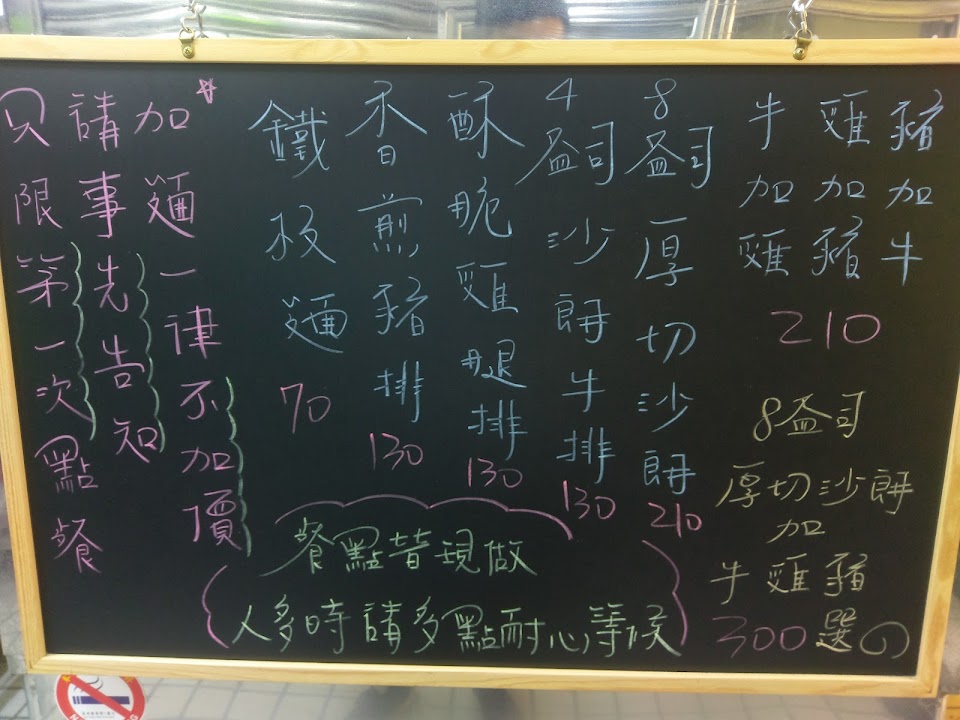 豬加牛
雞加豬
牛加雞
210
8盎司
厚切沙朗
加
牛雞豬
300選①
8盎司厚切沙朗210
4盎司沙朗牛排130
酥脆雞腿排130
香煎豬排130
鐵板麵70
加麵一律不加價
請事先告知
只限第一次點餐
餐點皆現做
人多時請多點耐心等候